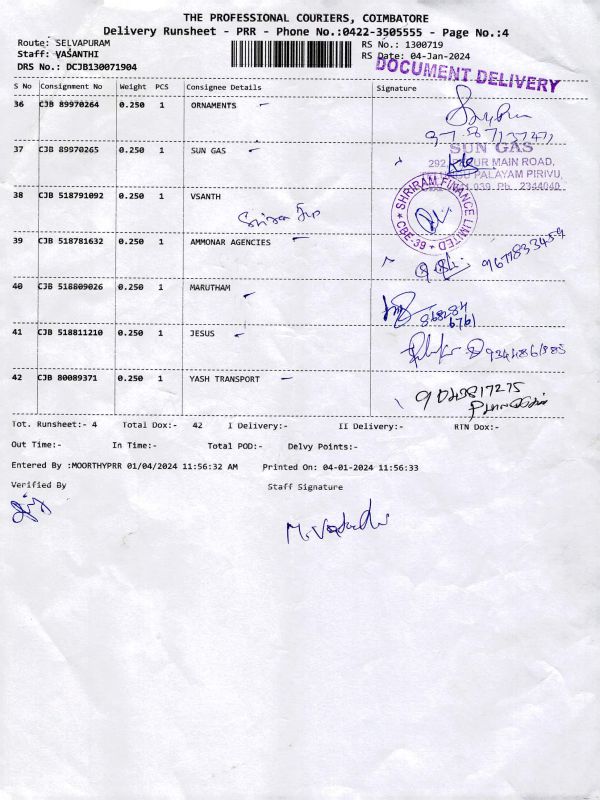 THE PROFESSIONAL COURIERS, COIMBATORE
Delivery Runsheet - PRR - Phone No.:0422-3505555 - Page No.:4
Route: SELVAPURAM RS No.: 1300719
Staff: VASANTHI RS Date: 04-Jan-2024
DRS No.: DCJB130071904
DOCUMENT DELIVERY
S No Consignment No Weight PCS Consignee Details Signature
36 CJB 89970264 0.250 1 ORNAMENTS
37 CJB 89970265 0.250 1 SUN GAS
SUN GAS
MAIN ROAD,
PALAYAM PIRIVU,
Ph. 2344040
38 CJB 518791092 0.250 1 VSANTH
SHRIRAM FINANCE LIMITED * CBE-39 *
39 CJB 518781632 0.250 1 AMMONAR AGENCIES
9677833459
40 CJB 518809026 0.250 1 MARUTHAM
868284
6761
41 CJB 518811210 0.250 1 JESUS
42 CJB 80089371 0.250 1 YASH TRANSPORT
9043817275
Tot. Runsheet:- 4 Total Dox:- 42 I Delivery:- II Delivery:- RTN Dox:-
Out Time:- In Time:- Total POD:- Delvy Points:-
Entered By :MOORTHYPRR 01/04/2024 11:56:32 AM Printed On: 04-01-2024 11:56:33
Verified By Staff Signature